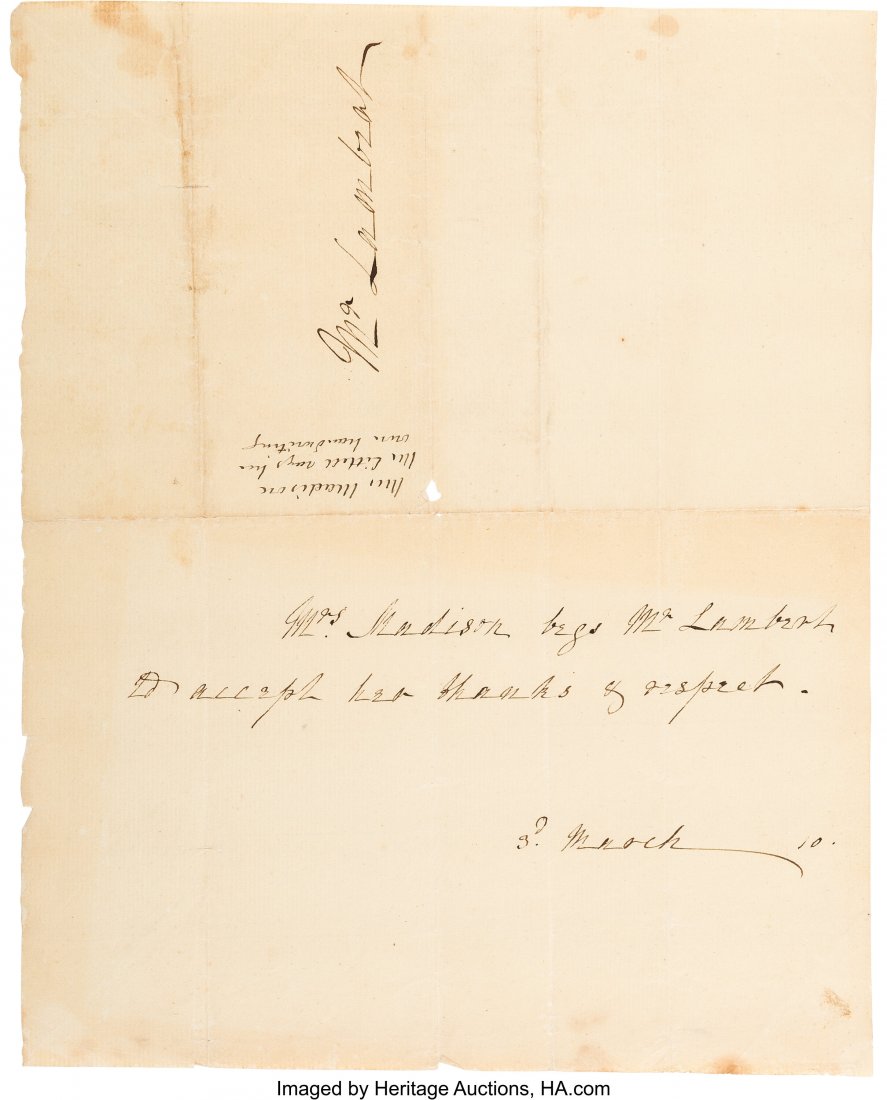 Mr Lambert
Mrs Madison
Mr Littell says her
own handwriting
Mrs. Madison begs Mr Lambert
to accept her thanks & respect.
3d. March 10.
Imaged by Heritage Auctions, HA.com